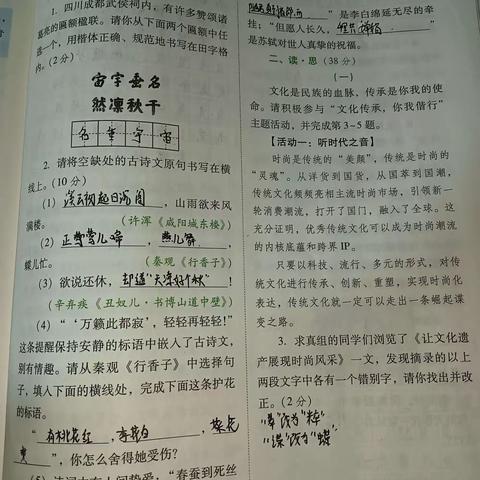 1. 四川成都武侯祠内，有许多赞颂诸
葛亮的匾额楹联。请你从下面两个匾额中任
选一个，用楷体正确、规范地书写在田字格
内。（2分）
宙宇垂名
然凛秋千
名垂宇宙
2. 请将空缺处的古诗文原句书写在横
线上。（10分）
（1） 溪云初起日沉阁 ，山雨欲来风
满楼。 （许浑《咸阳城东楼》）
（2）正莺儿啼 ， 燕儿舞 ，
蝶儿忙。 （秦观《行香子》）
（3）欲说还休，却道“天凉好个秋”！
（辛弃疾《丑奴儿·书博山道中壁》）
（4）“‘万籁此都寂’，轻轻再轻轻！”
这条提醒保持安静的标语中嵌入了古诗文，
别有情趣。请从秦观《行香子》中选择句
子，填入下面的横线处，完成下面这条护花
的标语。
“ 有桃花红 ，李花白 ，菜花
黄 ”，你怎么舍得她受伤？
（5）诗词中有人间挚爱，“春蚕到死丝
” 是李白绵延无尽的牵
挂；“但愿人长久， ”
是苏轼对世人真挚的祝福。
二、读·思（38分）
（一）
文化是民族的血脉、传承是你我的使
命。请积极参与“文化传承，你我偕行”
主题活动，并完成第3~5题。
【活动一：听时代之音】
时尚是传统的“美颜”，传统是时尚的
“灵魂”。从洋货到国货，从国萃到国潮，
传统文化频频亮相主流时尚市场，引领新一
轮消费潮流，打开了国门，融入了全球。这
充分证明，优秀传统文化可以成为时尚潮流
的内核底蕴和跨界IP。
只要以科技、流行、多元的形式，对传
统文化进行传承、创新、重塑，实现时尚化
表达，传统文化就一定可以走出一条崛起谍
变之路。
3. 求真组的同学们浏览了《让文化遗
产展现时尚风采》一文，发现摘录的以上
两段文字中各有一个错别字，请你找出并改
正。（2分）
“萃”改为“粹”
“谍”改为“蝶”